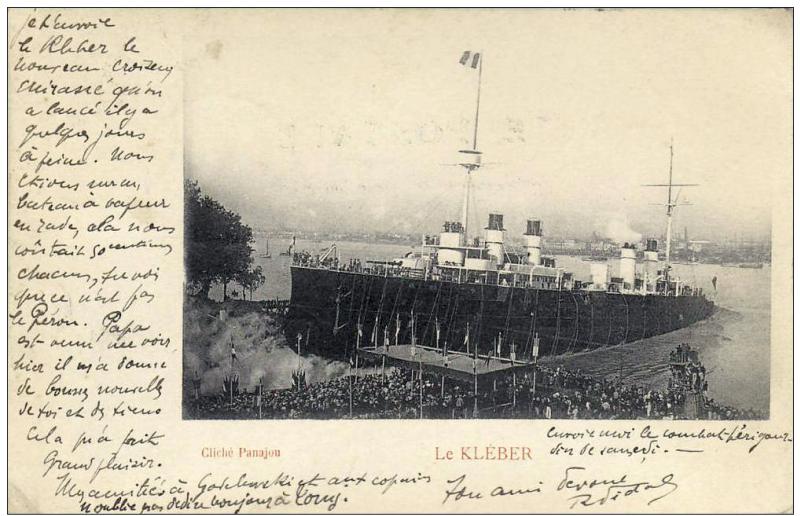 je t'envoie
le Kléber le
nouveau croiseur
cuirassé qu'on
a lancé il y a
quelques jours
à peine. Nous
étions sur un
bateau à vapeur
en rade, cela nous
coûtait 50 centimes
chacun, tu vois
que ce n'est pas
le Pérou. Papa
est venu me voir
hier il m'a donné
de bonnes nouvelles
de toi et des tiens
Cela m'a fait
Grand plaisir.
Mes amitiés à et aux copains
N'oublie pas de dire bonjour à Louy.
Cliché Panajou
Le KLÉBER
Envoie moi le combat périgour-
din de samedi. —
Ton ami dévoué